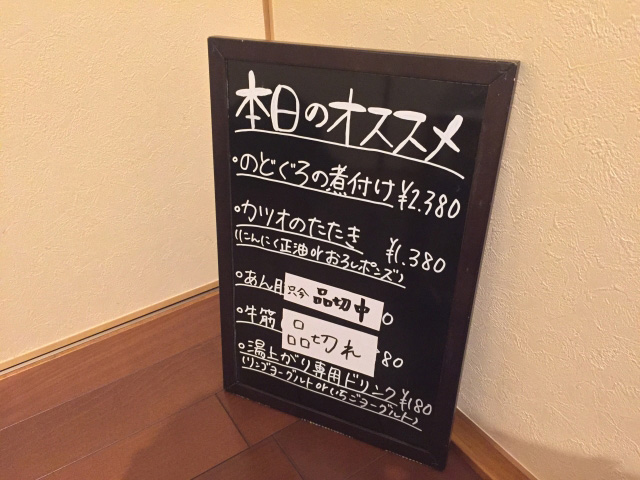 本日のオススメ
・のどぐろの煮付け ¥2.380
・カツオのたたき ¥1.380
(にんにく正油orおろしポンズ)
・あん 只今 品切中 0
・牛筋 品切れ 80
・湯上がり専用ドリンク ¥180
(リンゴヨーグルトorいちごヨーグルト)